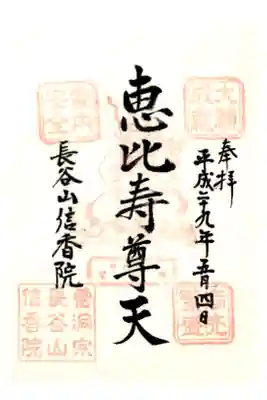 奉拝
平成二十九年五月四日
恵比寿尊天
長谷山信香院
家内
安全
曹洞宗
長谷山
信香院